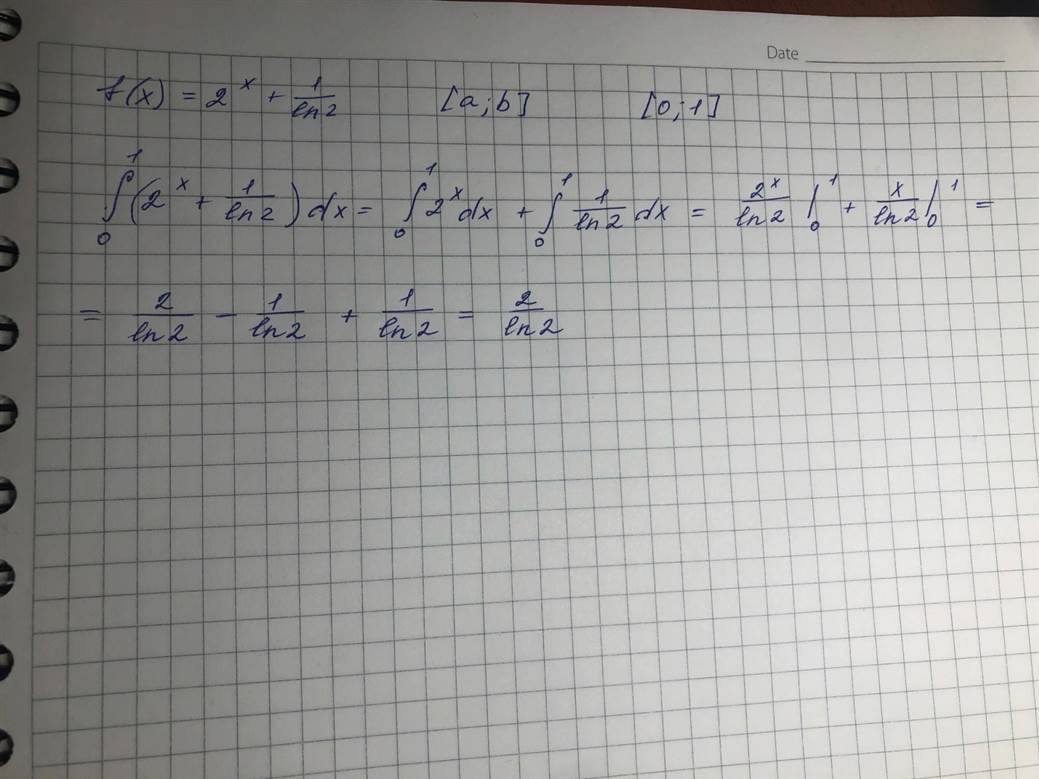 Date
f(x) = 2^x + 1/ln2 [a;b] [0;1]
∫₀¹(2^x + 1/ln2)dx = ∫₀¹2^x dx + ∫₀¹ 1/ln2 dx = 2^x/ln2 |₀¹ + x/ln2 |₀¹ =
= 2/ln2 − 1/ln2 + 1/ln2 = 2/ln2